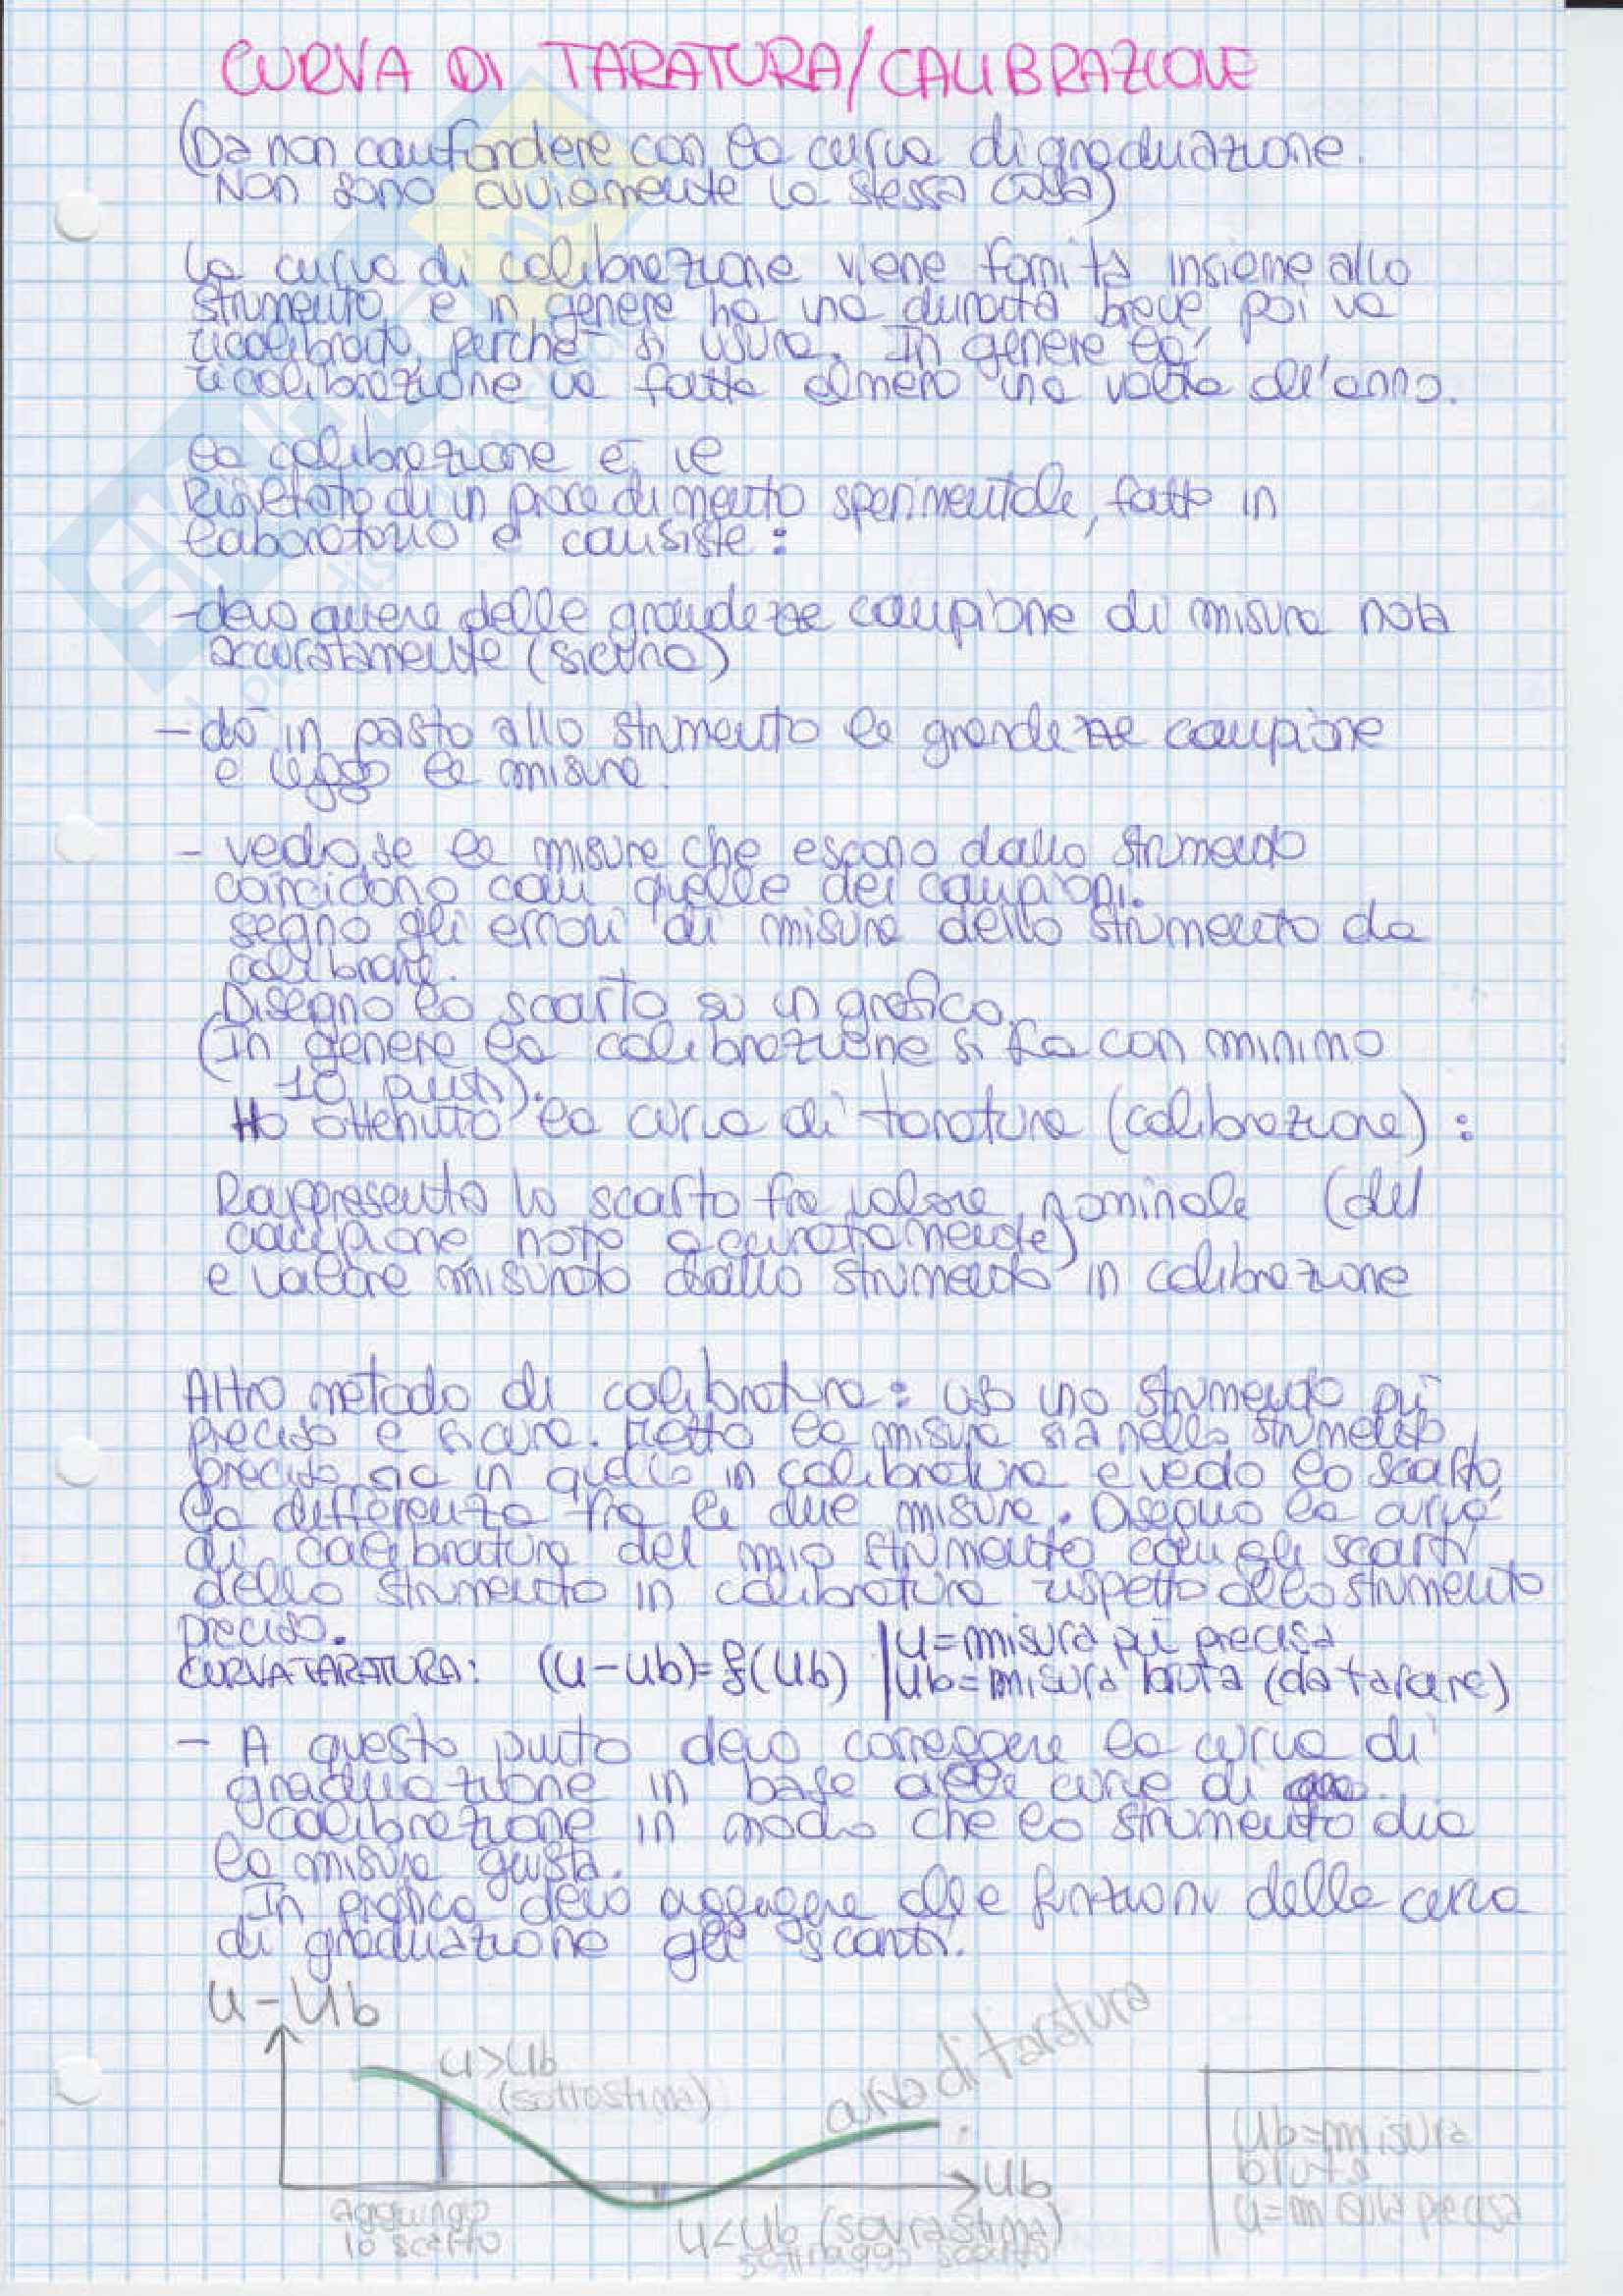 CURVA DI TARATURA/CALIBRAZIONE
(Da non confondere con la curva di graduazione.
Non sono ovviamente la stessa cosa)
La curva di calibrazione viene fornita insieme allo
strumento e in genere ha una durata breve poi va
ricalibrato, perché si usura. In genere la
ricalibrazione va fatta almeno una volta all'anno.
La calibrazione è il
Risultato di un procedimento sperimentale, fatto in
laboratorio e consiste:
-devo avere delle grandezze campione di misura nota
accuratamente (sicura)
-do in pasto allo strumento le grandezze campione
e leggo la misura.
- vedo se le misure che escono dallo strumento
coincidono con quelle dei campioni.
segno gli errori di misura dello strumento da
calibrare.
Disegno lo scarto su un grafico.
(In genere la calibrazione si fa con minimo
10 punti).
Ho ottenuto la curva di taratura (calibrazione) :
Rappresento lo scarto fra valore nominale (del
campione noto accuratamente)
e valore misurato dallo strumento in calibrazione
Altro metodo di calibratura: uso uno strumento più
preciso e sicuro. Metto la misura sia nello strumento
preciso sia in quello in calibratura e vedo lo scarto,
la differenza fra le due misure. Disegno la curva
di calibratura del mio strumento con gli scarti
dello strumento in calibratura rispetto allo strumento
preciso.
CURVA TARATURA: (U-Ub)=f(Ub) | U=misura più precisa
Ub=misura bruta (da tarare)
- A questo punto devo correggere la curva di
graduazione in base alle curve di
calibrazione in modo che lo strumento dia
la misura giusta.
In pratica devo aggiungere alle funzioni della curva
di graduazione gli scarti.
U-Ub
U>Ub
(sottostima)
curva di taratura
Ub
Aggiungo
lo scarto
U<Ub (sovrastima)
sottraggo scarto
Ub=misura
bruta
U=misura precisa